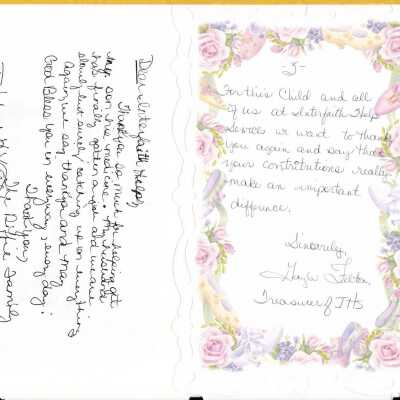 Dear Interfaith Helps
Thank you so much for helping get
my son his medicine. My husband
has finally gotten a job and we are
slowly but surely catching up on everything
again, we say thank you and may
God Bless you in everyway, everyday!
Thank you,
The
family
- 5 -
For this Child and all
of us at Interfaith Help
Services we want to thank
you again and say that
your contributions really
make an important
difference.
Sincerely,
Treasurer of IHS